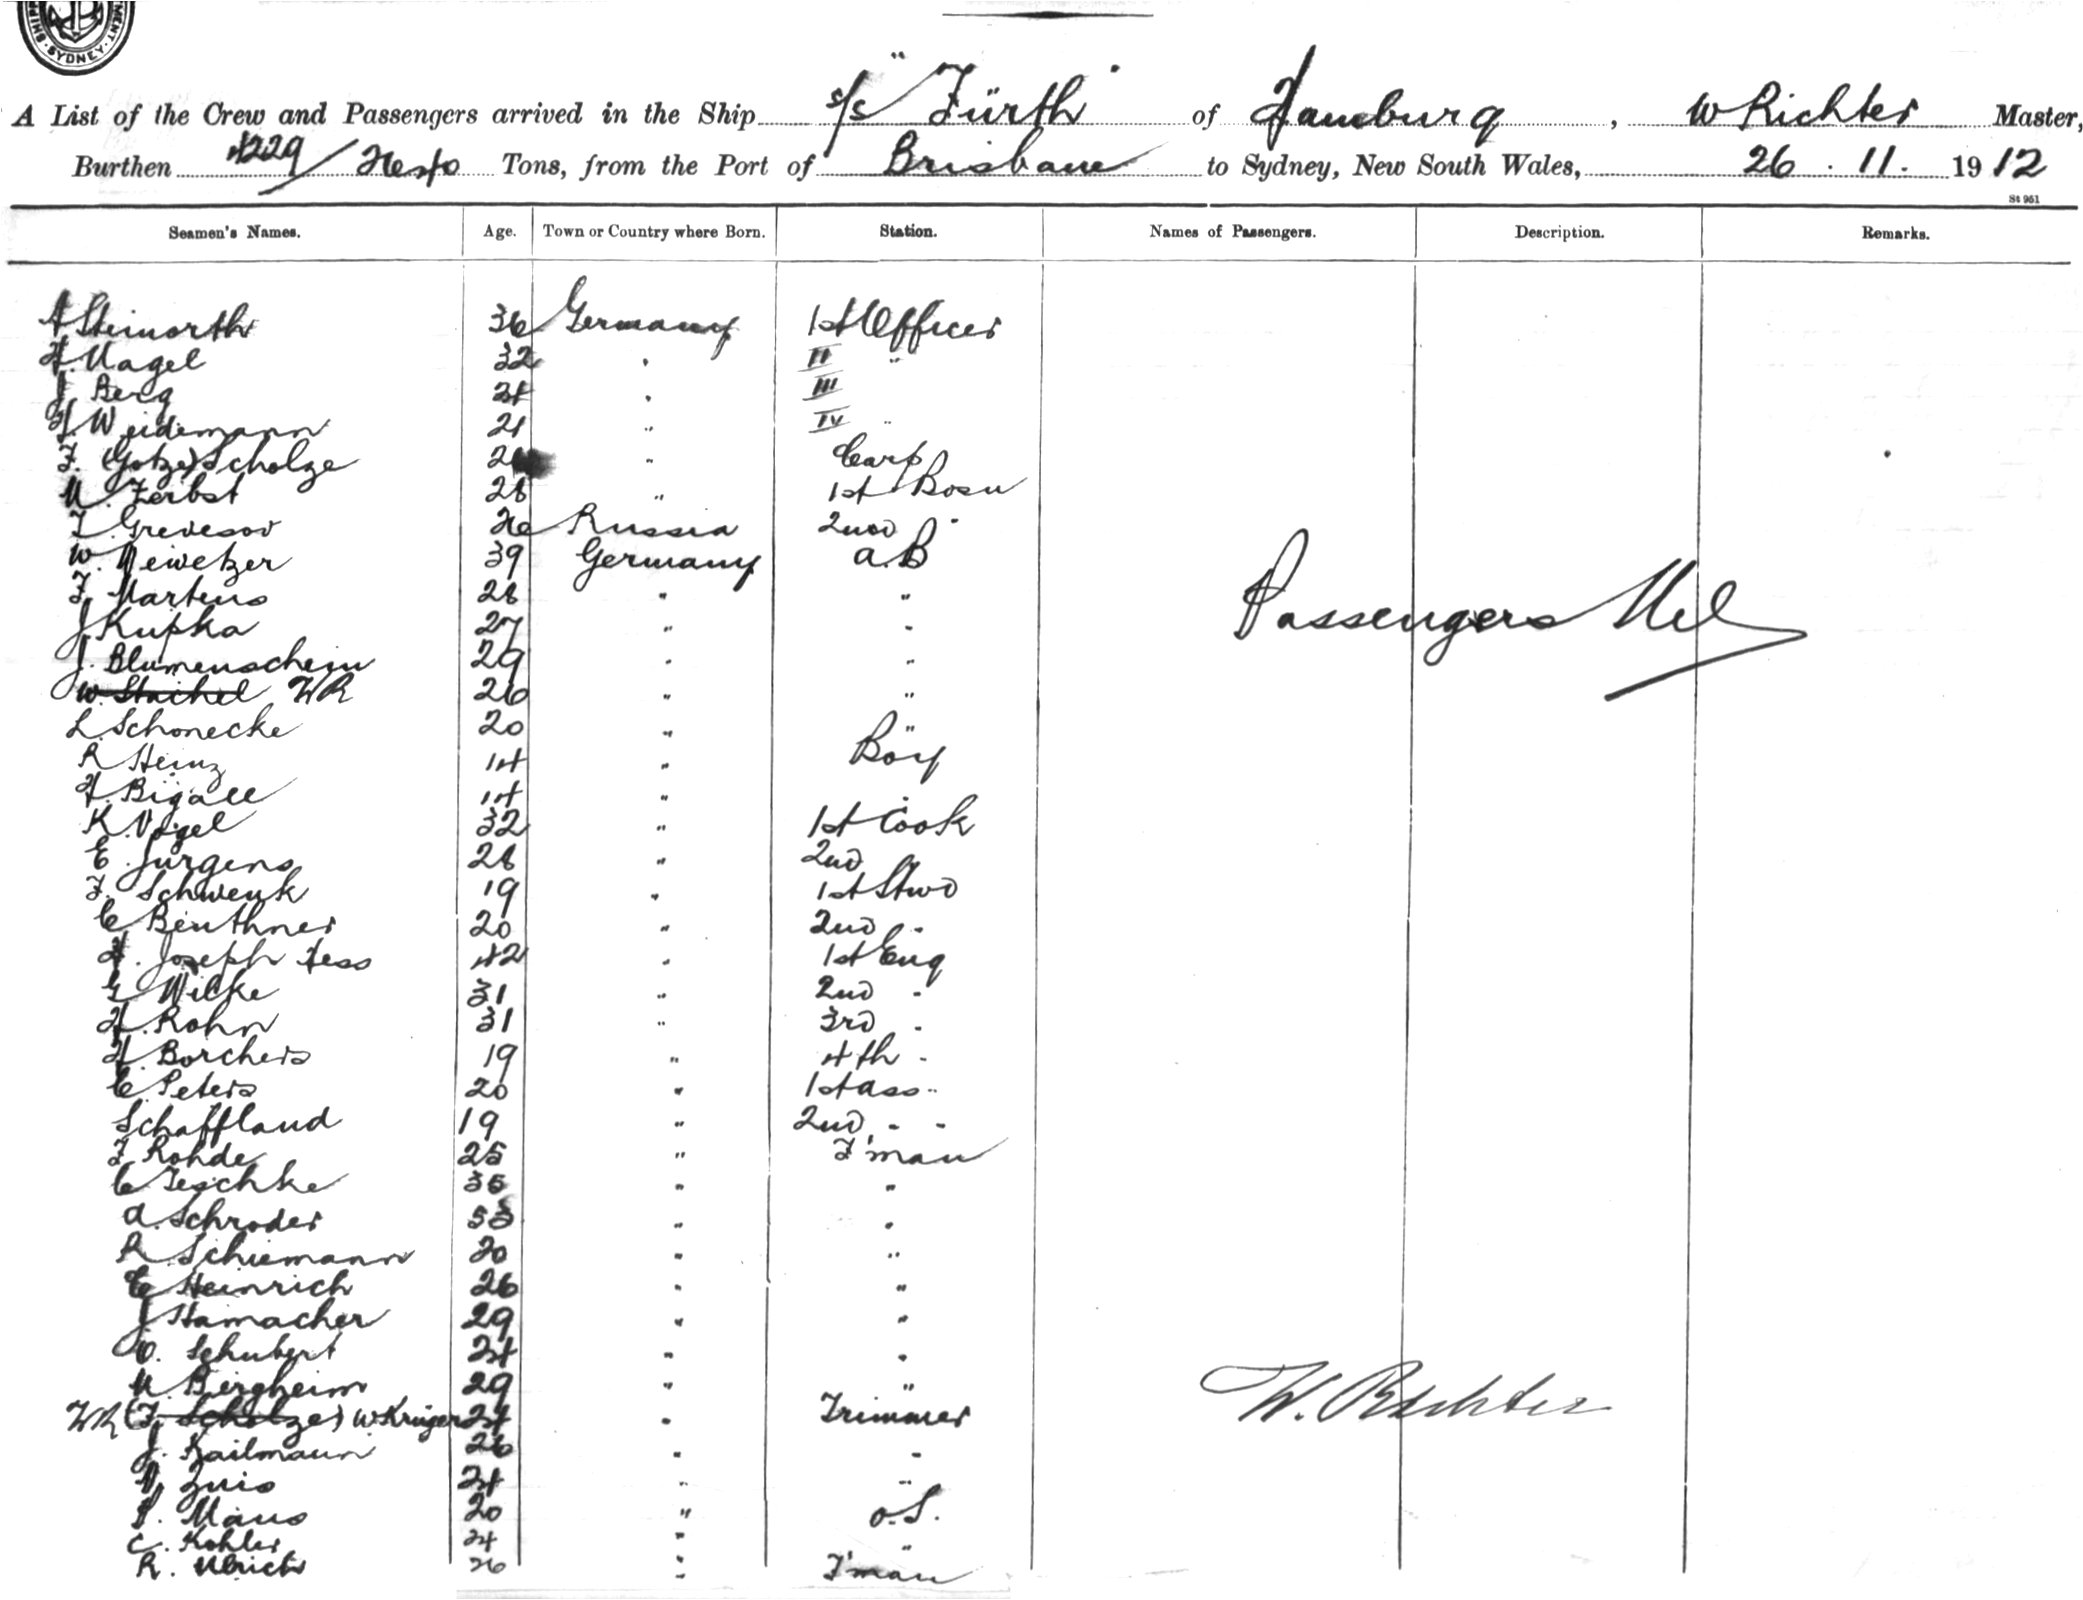 MENT · SYDNEY · SHIP
A List of the Crew and Passengers arrived in the Ship s/s "Fürth" of Hamburg, W Richter Master,
Burthen 4229 / Tons, from the Port of Brisbane to Sydney, New South Wales, 26 . 11. 1912
St 951
Seamen's Names. Age. Town or Country where Born. Station. Names of Passengers. Description. Remarks.
A Steinorth 36 Germany 1st Officer
H. Nagel 32 " II "
J Berg 24 " III
H. Weidemann 21 " IV "
F. (Gotze) Scholze " Carp
M. Zerbst 28 " 1st Bosn
Grevesov Russia 2nd "
W. Neiwetzer 39 Germany a.B
F. Martens 28 " "
J Kupka 27 " "
Passengers Nil
J. Blumenschein 29 " "
W. Stachel WR 26 " "
L. Schonecke 20 " "
R Heinz 14 " Boy
H. Bigall 14 " "
K. Vogel 32 " 1st Cook
E. Jurgens 28 " 2nd
F. Schwenk 19 " 1st Stwd
C Beuthner 20 " 2nd "
H. Joseph Hess 42 " 1st Eng
G Wilke 31 " 2nd "
H. Rohn 31 " 3rd "
H. Borchers 19 " 4th "
C. Peters 20 " 1st ass "
Schaffland 19 " 2nd " "
F Rohde 25 " F'man
C Jeschke 35 " "
A. Schroder 53 " "
R. Schiemann 20 " "
E Heinrich 26 " "
J Hamacher 29 " "
O. Schubert 24 " "
M. Bergheim 29 " "
W. Richter
WR (F. Scholze) W Kruger 24 " Trimmer
J. Kailmann 26 " "
24 " "
P. Maus 20 " o.S.
C. Kohler 24 " "
R. Ulrich 26 " F'man